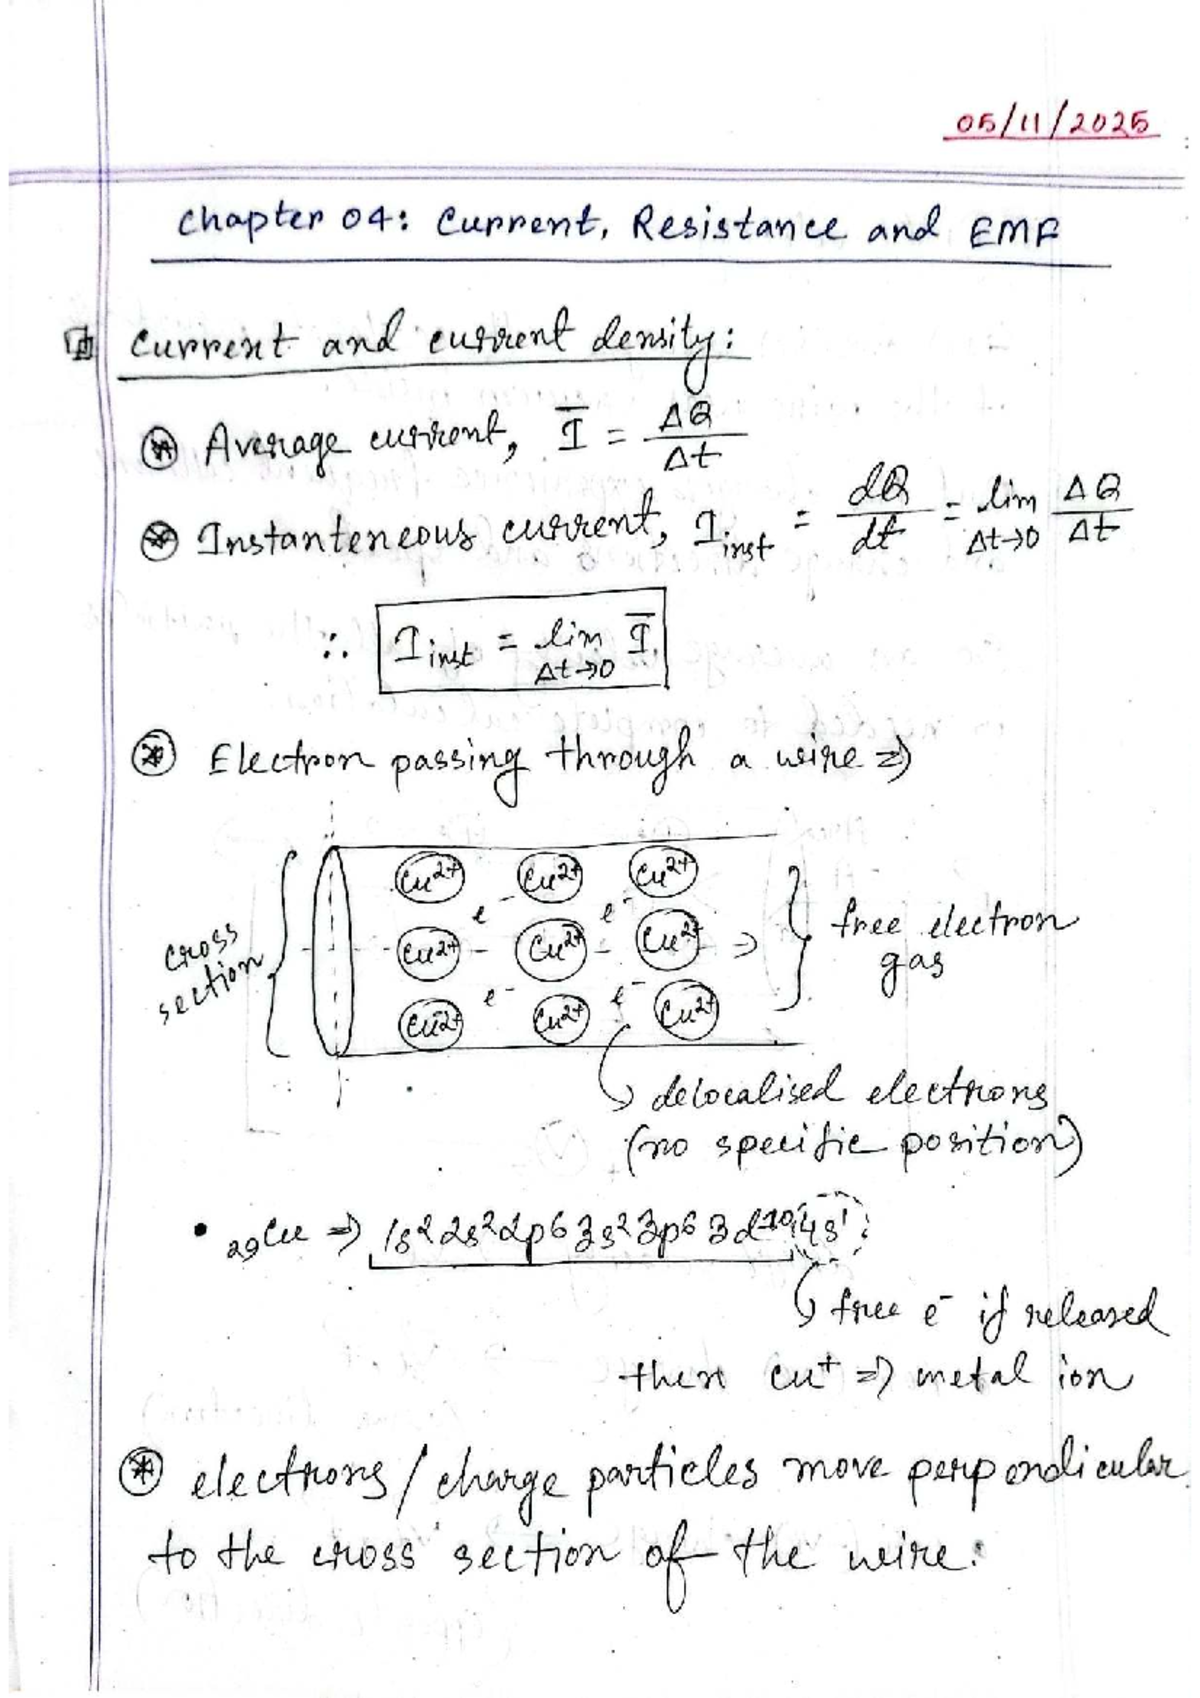 05/11/2025
Chapter 04: Current, Resistance and EMF
Current and current density:
⊛ Average current, Ī = ΔQ/Δt
⊛ Instanteneous current, I_inst = dQ/dt = lim Δt→0 ΔQ/Δt
∴ I_inst = lim Δt→0 Ī
⊛ Electron passing through a wire ⇒
Cu²⁺ Cu²⁺ Cu²⁺
e⁻ e⁻
cross section
Cu²⁺ Cu²⁺ Cu²⁺
free electron gas
e⁻ e⁻
Cu²⁺ Cu²⁺ Cu²⁺
delocalised electrons
(no specific position)
• ₂₉Cu ⇒ 1s² 2s² 2p⁶ 3s² 3p⁶ 3d¹⁰ 4s¹
free e⁻ if released
then Cu⁺ ⇒ metal ion
⊛ electrons/charge particles move perpendicular
to the cross section of the wire.